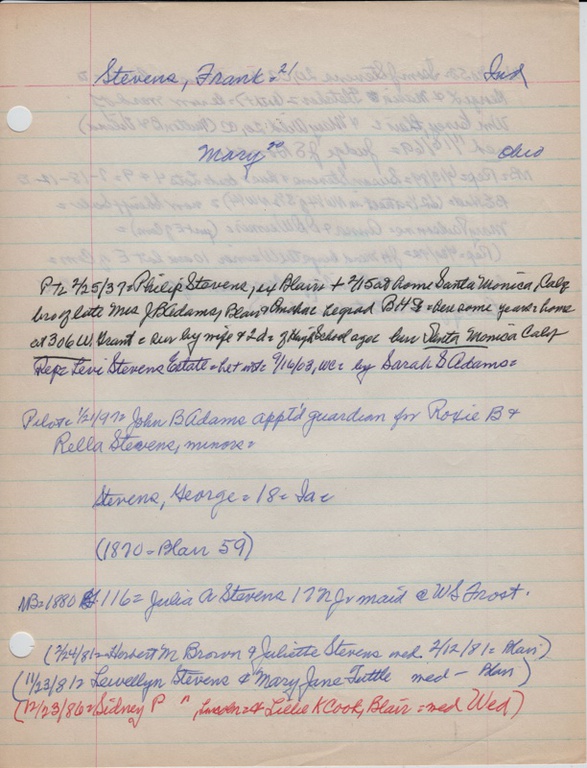 Stevens, Frank = 21 Ind
Mary 20 Ohio
PT= 2/25/37= Philip Stevens, ex Blair + 2/15 at home Santa Monica, Calif
bro of late Mrs J B Adams, Blair & Omaha Legrad BHS = here some years = home
at 306 W. Grant = sur by wife & 2d = of High School age bur Santa Monica Calif
Rep= Levi Stevens Estate = let = 9/16/03, WC = by Sarah S Adams=
Pilot= 1/21/97= John B Adams appt'd guardian for Roxie B &
Rella Stevens, minors=
Stevens, George = 18 = Ia =
(1870 = Blair 59)
NB= 1880 116= Julia A Stevens 17 NJ maid @ W S Frost.
(2/24/81= Herbert M Brown & Juliette Stevens med 2/12/81= Blair)
(11/23/81= Lewellyn Stevens & Mary Jane Tuttle med - Blair)
(12/23/86= Sidney P " & Lillie K Cook, Blair = med Wed)